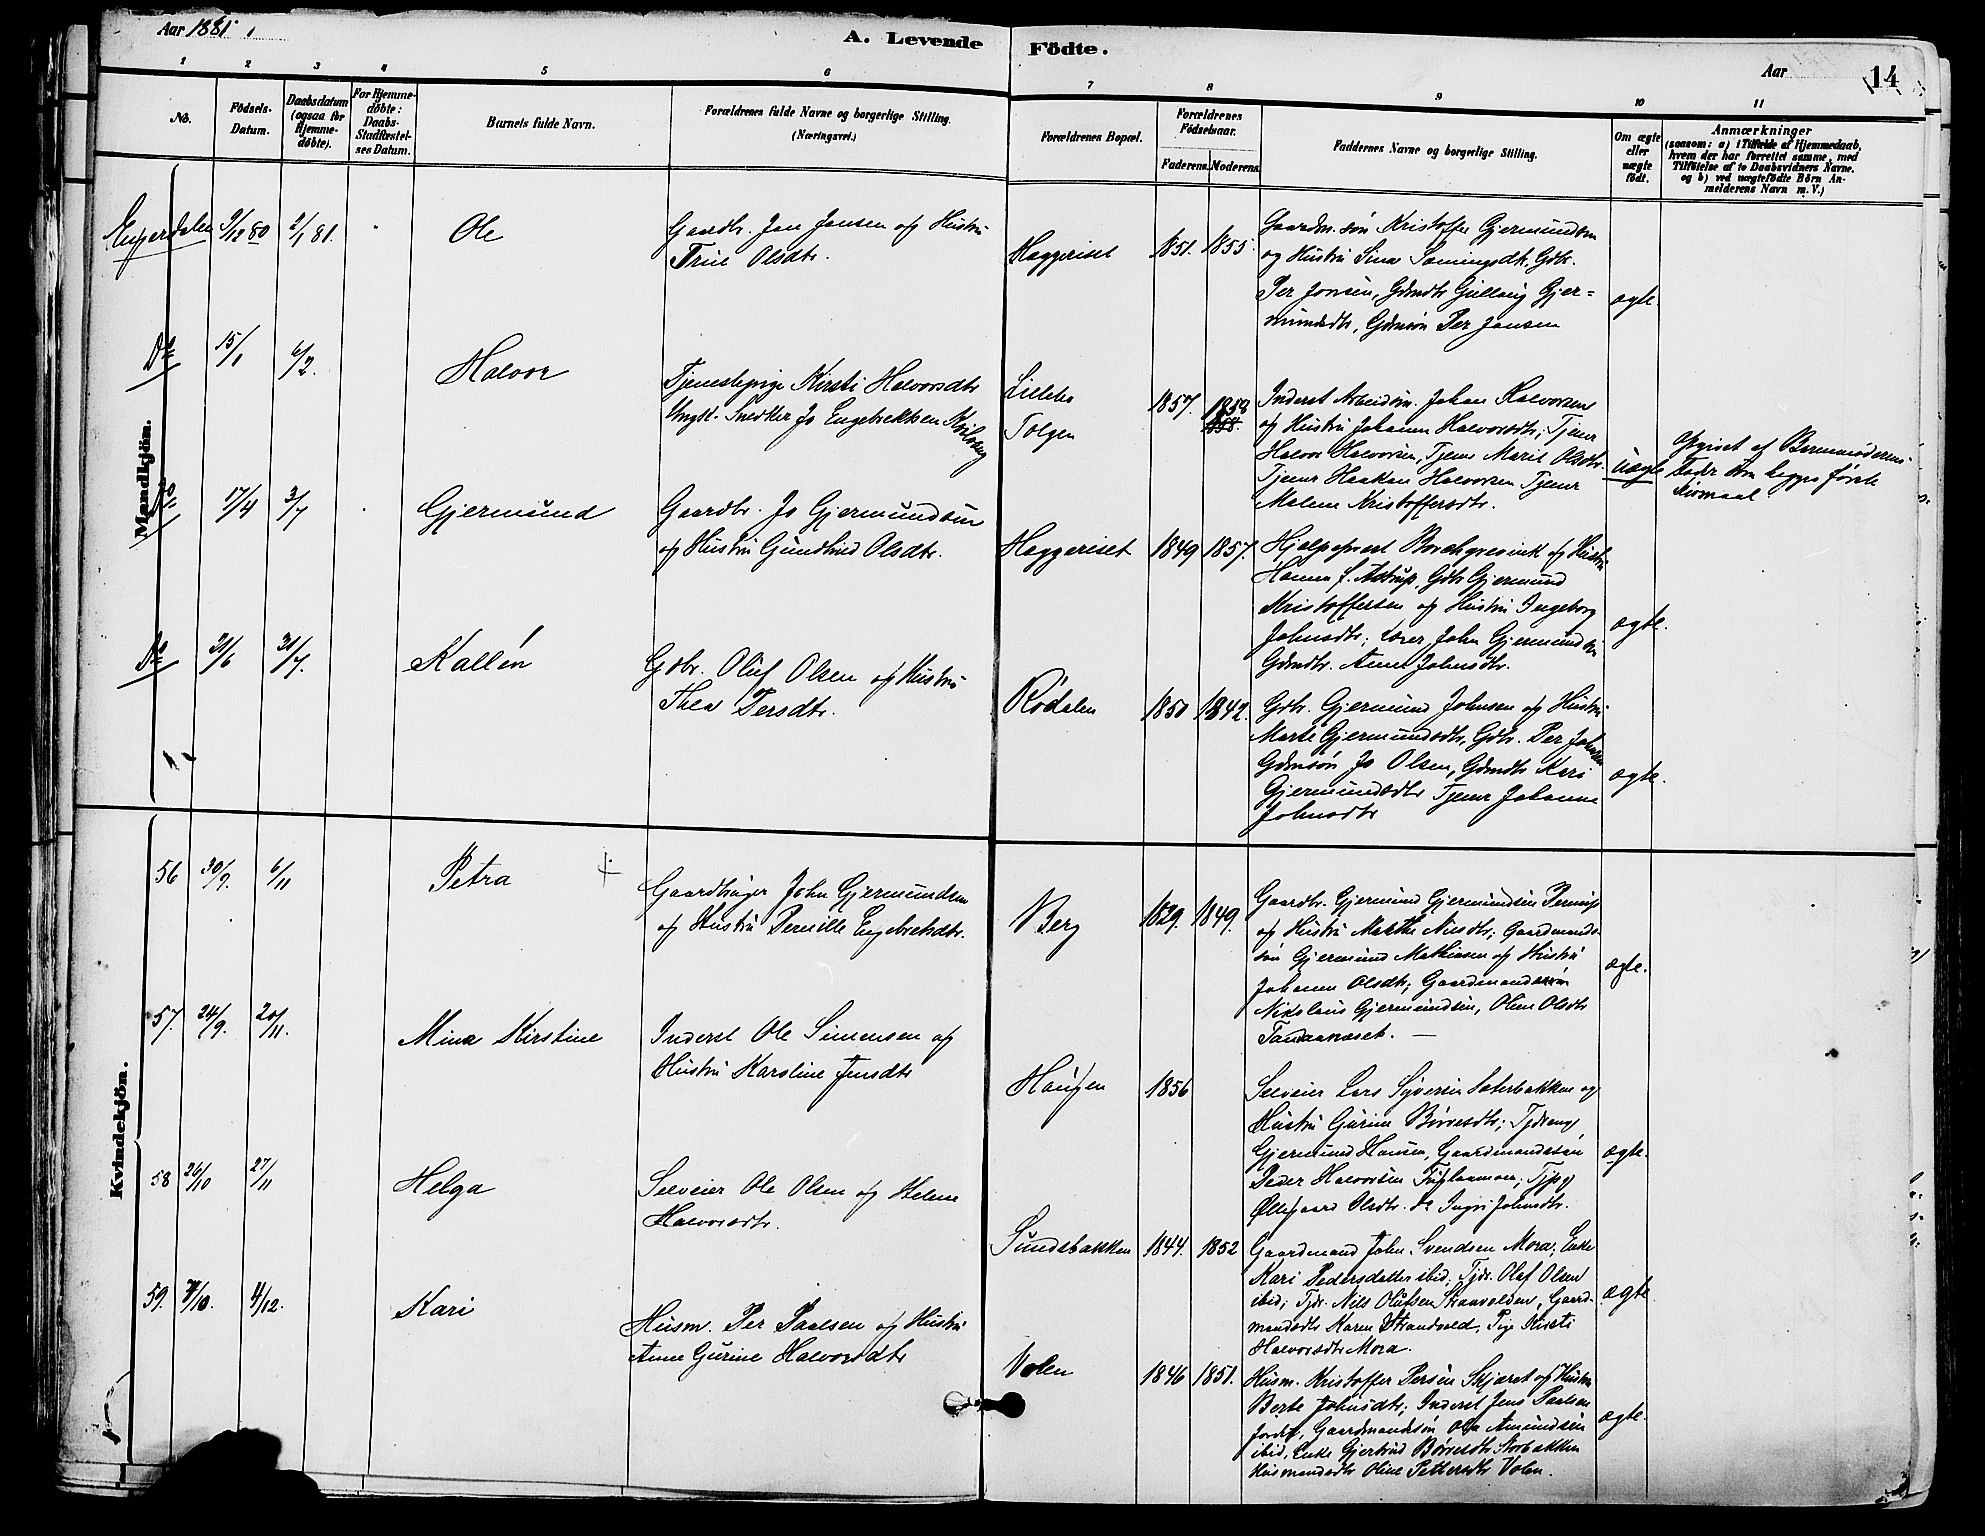 Aar 1881.
A. Levende Födte.
Aar
14
1 2 3 4 5 6 7 8 9 10 11
No.
Födsels-Datum.
Daabsdatum (ogsaa for Hjemme-döbte).
For Hjemme-döbte: Daabs-Stadfæstel-ses Datum.
Barnets fulde Navn.
Forældrenes fulde Navne og borgerlige Stilling.
(Næringsvei.)
Forældrenes Bopæl.
Forældrenes Födselsaar.
Faderens. Moderens.
Faddernes Navne og borgerlige Stilling.
Om ægte eller uægte födt.
Anmærkninger
(saasom: a) i Tilfælde af Hjemmedaab,
hvem der har forrettet samme, med
Tilföielse af to Daabsvidners Navne,
og b) ved uægtefödte Börn An-
melderens Navn m. V.)
Mandkjön.
Engerdalen 9/12 80 2/1 81. Ole
Gaardbr. Jon Jonsen og Hustru
Trine Olsdtr.
Haggeriset 1851. 1855.
Gaardm.søn Kristoffer Gjermundsen
og Hustru Sina Samingsdtr, Gdbr.
Per Jonsen, Gdmdtr Gullaug Gjer-
mundsdtr, Gdmsøn Per Jonsen
ægte
Do 15/1 6/2. Halvor
Tjenestepige Kirsti Halvorsdtr
Ungk. Snedker Jo Engebrektsen
Lillebo
Tolgen
1857. 1858
Inderst Johan Halvorsen
og Hustru Johanne Halvorsdtr; Tjener
Halvor Halvorsen, Tjener Marit Olsdtr.
Tjener Haakon Halvorsen Tjener
Malene Kristoffersdtr.
uægte
Opgivet af Barnemoderens
Fader som begges første
Leiermaal
Do 17/4 3/7 Gjermund
Gaardbr. Jo Gjermundsen
og Hustru Gundhild Olsdtr.
Haggeriset 1849 1857.
Hjælpepræst Borchgrevink og Hustru
Hanna f. Astrup, Gdbr Gjermund
Kristoffersen og Hustru Ingeborg
Johnsdtr; Lærer John Gjermundsen
Gdmdtr. Anne Johnsdtr.
ægte.
Do 21/6 31/7. Kallén
Gdbr. Oluf Olsen og Hustru
Thea Persdtr.
Rødalen 1850 1842.
Gdbr. Gjermund Johnsen og Hustru
Marte Gjermundsdtr, Gdbr. Per Johnsen
Gdmsøn Jo Olsen, Gdmdtr Kari
Gjermundsdtr Tjener Johanne
Johnsdtr
ægte.
Kvindekjön.
56 30/9. 6/11 Petra +
Gaardbruger John Gjermundsen
og Hustru Pernille Engebretsdtr.
Berg 1829. 1849.
Gaardbr. Gjermund Gjermundsen
og Hustru Marthe Nilsdtr; Gaardmands-
søn Gjermund Mathiasen og Hustru
Johanne Olsdtr; Gaardmandssøn
Nikolaus Gjermundsen, Oline Olsdtr
ægte.
57. 24/9. 20/11. Mina Kirstine
Inderst Ole Simensen og
Hustru Karoline Jensdtr
Haugen 1856
Selveier Lars Syversen Sæterbakken og
Hustru Gurine Børresdtr; Tjdreng
Gjermund Hansen, Gaardmandssøn
Peder Halvorsen Fuglaamoen; Tjpg
Øllegaard Olsdtr. do Ingri Johnsdtr.
ægte.
58 26/10 27/11 Helga
Selveier Ole Olsen og Helene
Halvorsdtr.
Sundsbakken 1844. 1852
Gaardmand John Svendsen Mora; Enke
Kari Pedersdatter ibid; Tjdr. Olaf Olsen
ibid; Tjdr. Nils Olufsen Strandvolden, Gaard-
mandsdtr Karen Strandvold, Pige Kirsti
Halvorsdtr Mora.
ægte.
59. 7/10. 4/12. Kari
Husm. Per Paalsen og Hustru
Anne Gurine Halvorsdtr
Volen 1846 1851.
Husm. Kristoffer Persen Skjæret og Hustru
Berte Johnsdtr; Inderst Jens Paalsen
Gaardmandssøn Ole Amundsen
ibid, Enke Gjertrud Børresdtr Storbakken
Husmandsdtr Oline Pettersdtr Volen.
ægte.